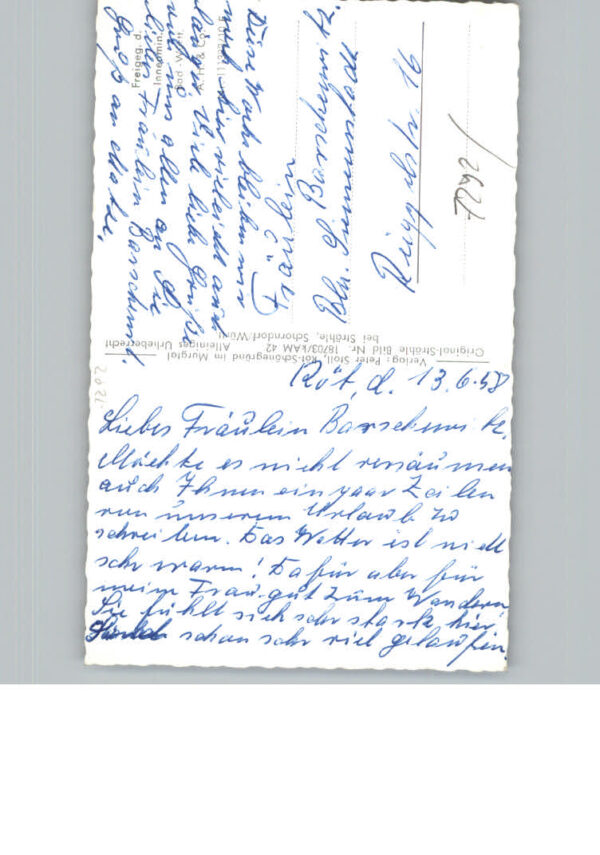 Röt, d. 13.6.58
Liebes Fräulein
Möchte es nicht versäumen
auch Ihnen ein paar Zeilen
von unserem Urlaub zu
schreiben. Das Wetter ist nicht
sehr warm! Dafür aber für
meine Frau gut zum Wandern
Sie fühlt sich sehr stark, hier
schon sehr viel gelaufen.
Woche bleiben wir
noch hier vielleicht auch
länger. Viel liebe Grüße
von uns allen an Sie
liebes Fräulein
Gruß an
Fräulein
Bln. Siemensstadt
16
7292/
7292
Verlag: Peter Stoll, Röt-Schönegründ im Murgtal
Original-Strähle Bild Nr. 18703/kAM 42 Alleiniges Urheberrecht
bei Strähle, Schorndorf/Württ.
Freigeg. d.
Innenmin.
Bad.-Württ.